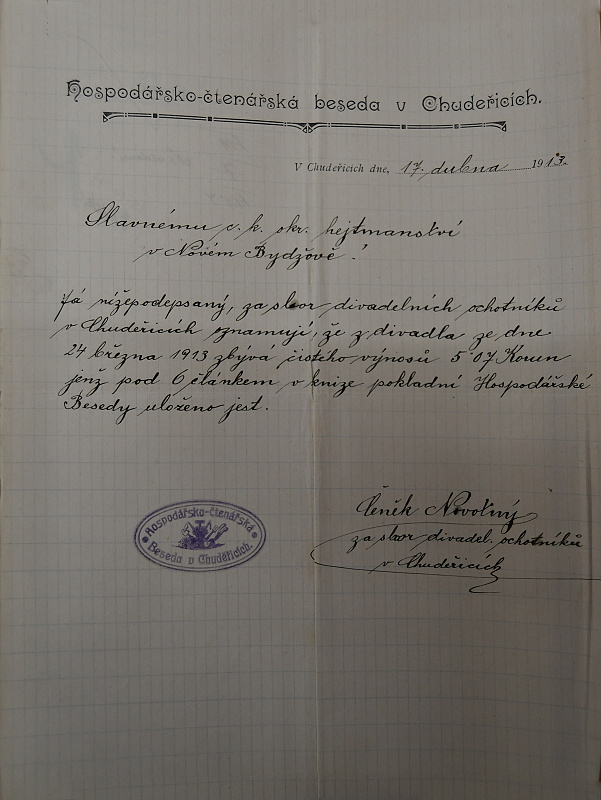 Hospodářsko-čtenářská beseda v Chudeřicích.
V Chudeřicích dne, 17. dubna 1913.
Slavnému c. k. okr. hejtmanství
v Novém Bydžově!
Já nížepodepsaný, za sbor divadelních ochotníků
v Chudeřicích oznamuji, že z divadla ze dne
24 března 1913 zbývá čistého výnosů 5·07 Korun
jenž pod 6 článkem v knize pokladní Hospodářské
Besedy uloženo jest.
Čeněk Novotný
za sbor divadel. ochotníků
v Chudeřicích
Hospodářsko-čtenářská
Beseda v Chuděřicích.